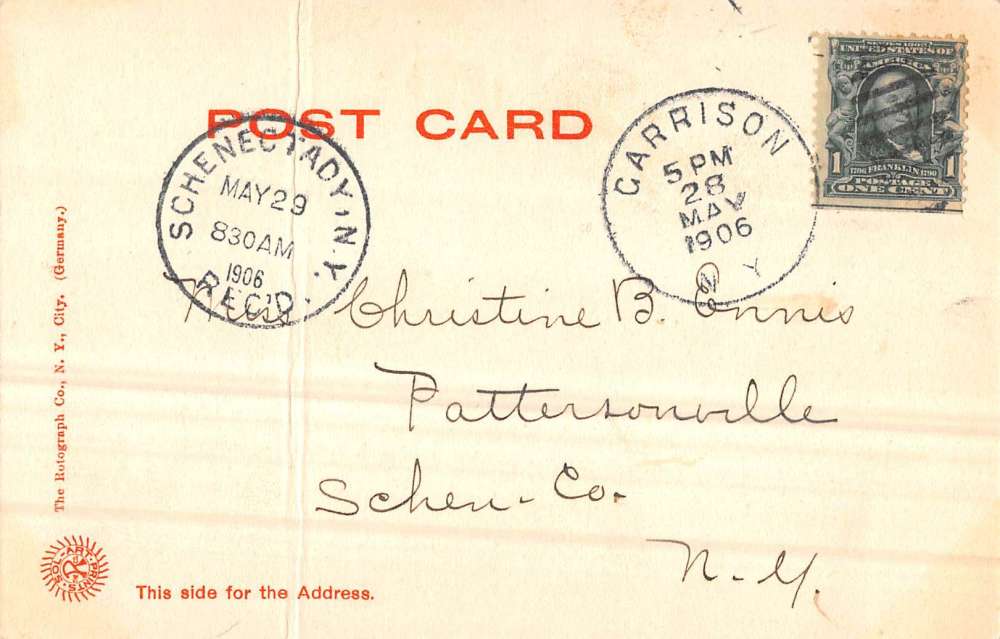 POST CARD
SCHENECTADY, N.Y.
MAY 29
830 AM
1906
REC'D.
GARRISON
5 PM
28
MAY
1906
N Y
SERIES 1902
UNITED STATES OF
AMERICA
1706 FRANKLIN 1790
1 POSTAGE 1
ONE CENT
Miss Christine B. Ennis
Pattersonville
Schen. Co.
N. Y.
The Rotograph Co., N. Y., City. (Germany.)
SOL-ART-PRINTS
This side for the Address.